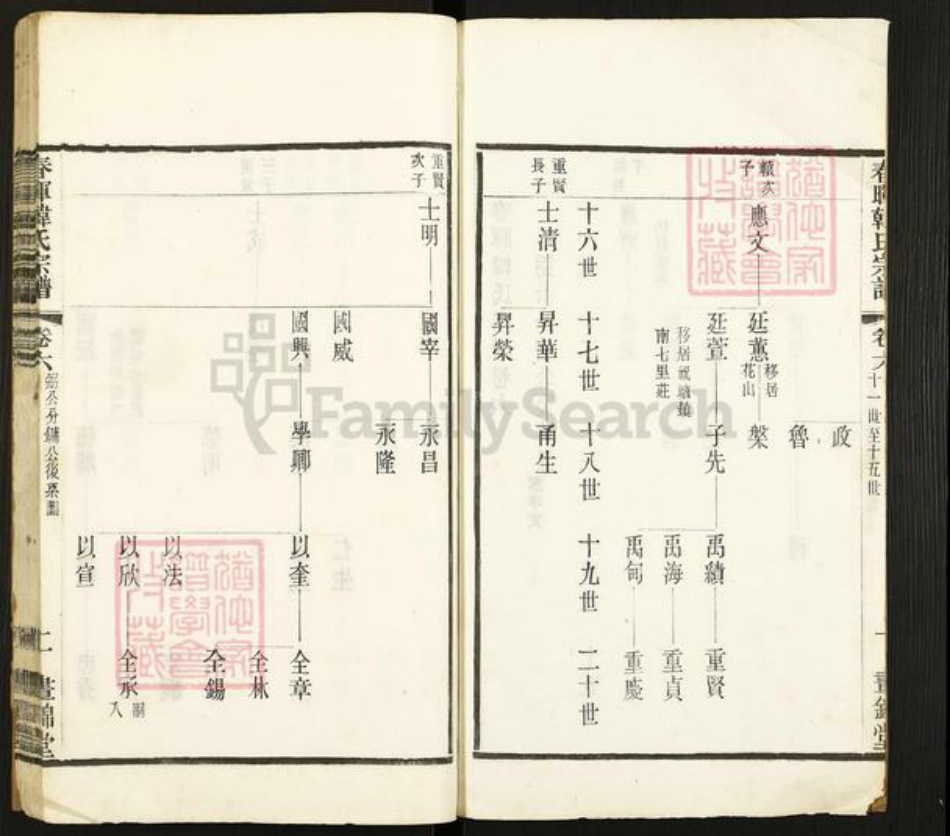 春暉韓氏宗譜 卷六 十一世至十五世 一 晝錦堂
政
魯
穎次子 應文 廷蕙 移居花山 槃
廷萱 子先 禹績 重賢
南七里莊
禹海 重貞
禹甸 重慶
十六世 十七世 十八世 十九世 二十世
重賢長子 士清 昇華 甬生
昇榮
重賢次子 士明 國宰 永昌
永隆
國威
國興 學卿 以奎 全章
全林
全錫
以法
以欣 全承 嗣入
以宣
春暉韓氏宗譜 卷六 二 晝錦堂
FamilySearch